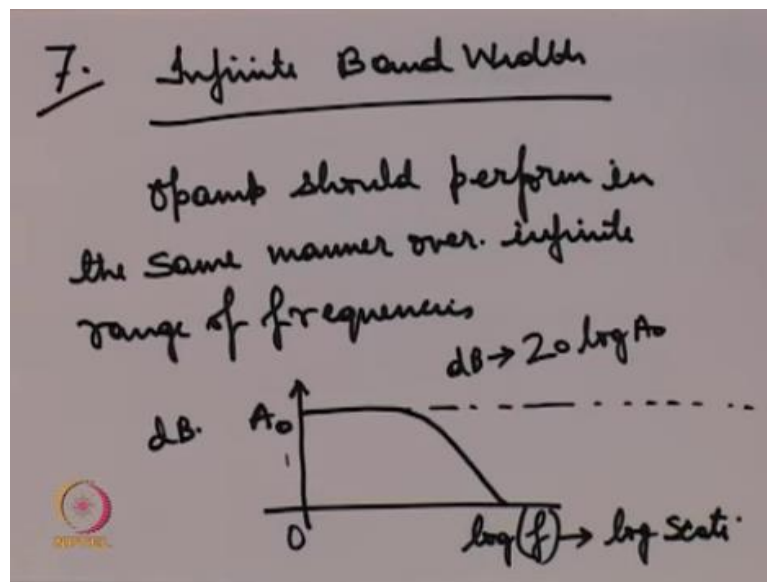 7. Infinite Band Width
Opamp should perform in
the same manner over. infinite
range of frequencies
dB → 20 log A₀
dB. A₀
0 log(f) → log Scale
NPTEL